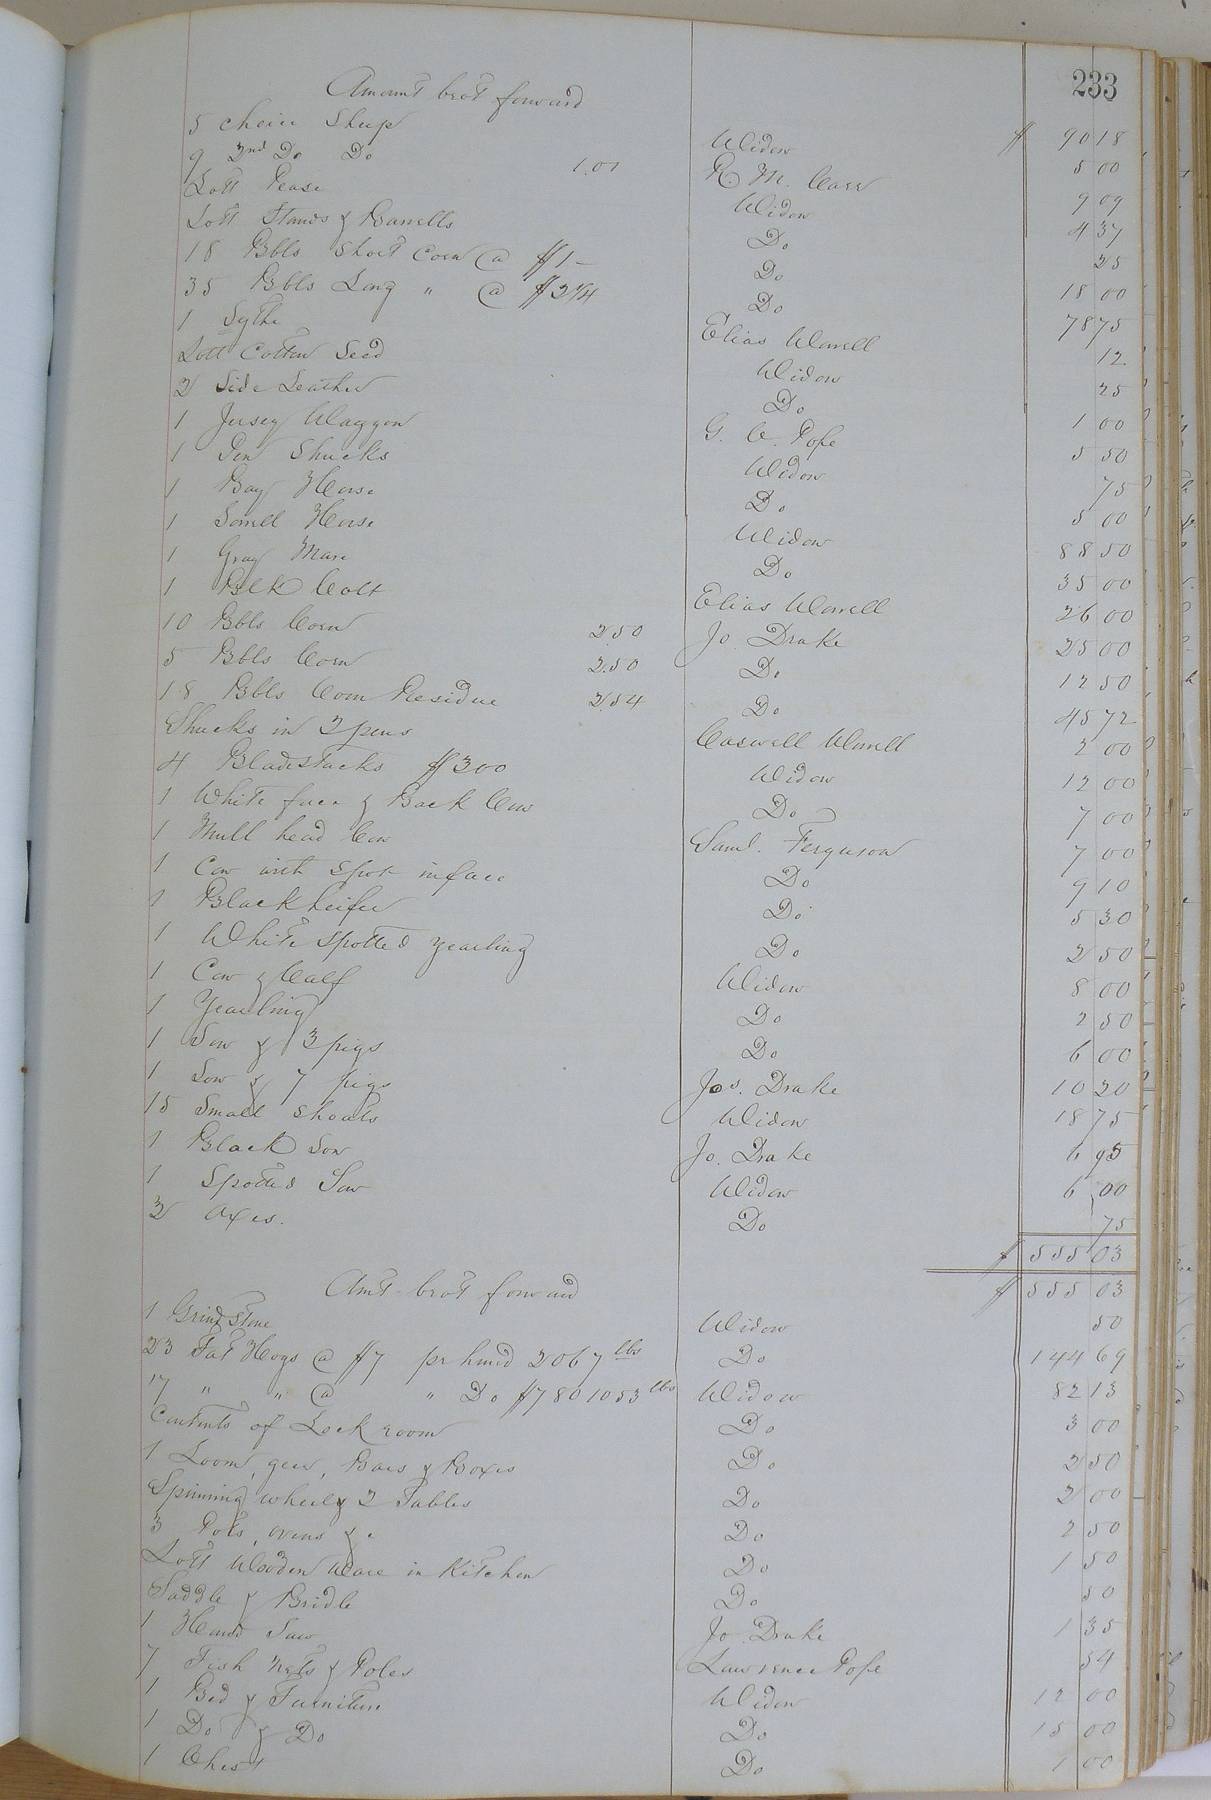 233
Amount brot forward $ 90 18
5 Choice Sheep Widow 5 00
9 2nd Do Do 1.01 R. M. Carr 9 09
Lott Pease Widow 4 37
Lott Stands & Barrells Do 25
18 Bbls Short Corn @ $1— Do 18 00
35 Bbls Long " @ $2 1/4 Do 78 75
1 Sythe Elias Worrell 12
Lott Cotton Seed Widow 25
2 Side Leather Do 1 00
1 Jersey Waggon G. W. Pope 5 50
1 Pen Shucks Widow 75
1 Bay Horse Do 5 00
1 Sorrell Horse Widow 88 50
1 Gray Mare Do 35 00
1 Blk Colt Elias Worrell 26 00
10 Bbls Corn 2.50 Jo Drake 25 00
5 Bbls Corn 2.50 Do 12 50
18 Bbls Corn Residue 2.54 Do 45 72
Shucks in 2 pens Caswell Worrell 2 00
4 Bladestacks $3 00 Widow 12 00
1 White face & Back Cow Do 7 00
1 Mull head Cow Saml. Ferguson 7 00
1 Cow with Spot in face Do 9 10
1 Black heifer Do 5 30
1 White Spotted yearling Do 2 50
1 Cow & Calf Widow 8 00
1 Yearling Do 2 50
1 Sow & 3 pigs Do 6 00
1 Sow & 7 pigs Jos. Drake 10 20
15 Small Shoats Widow 18 75
1 Black Sow Jo. Drake 6 95
1 Spotted Sow Widow 6 00
2 Axes. Do 75
$ 555 03
Amt brot forward $ 555 03
1 Grind Stone Widow 50
23 Fat Hogs @ $7 pr hund 2067 lbs Do 144 69
17 " " @ " Do $7 80 1053 lbs Widow 82 13
Contents of Lock room Do 3 00
1 Loom, gear, Bars & Boxes Do 2 50
Spinning wheel & 2 Tables Do 2 00
3 Pots, ovens &c Do 2 50
Lott Wooden Ware in Kitchen Do 1 50
Saddle & Bridle Do 50
1 Hand Saw Jo. Drake 1 35
7 Fish Nets & Poles Lawrence Pope 54
1 Bed & Furniture Widow 12 00
1 Do & Do Do 15 00
1 Chest Do 1 00